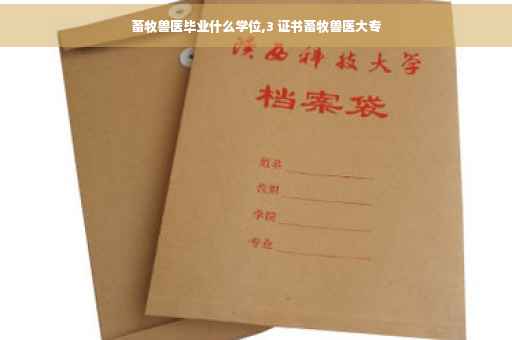 畜牧兽医毕业什么学位,3 证书畜牧兽医大专
陕西科技大学
档案袋
姓名
学院
专业